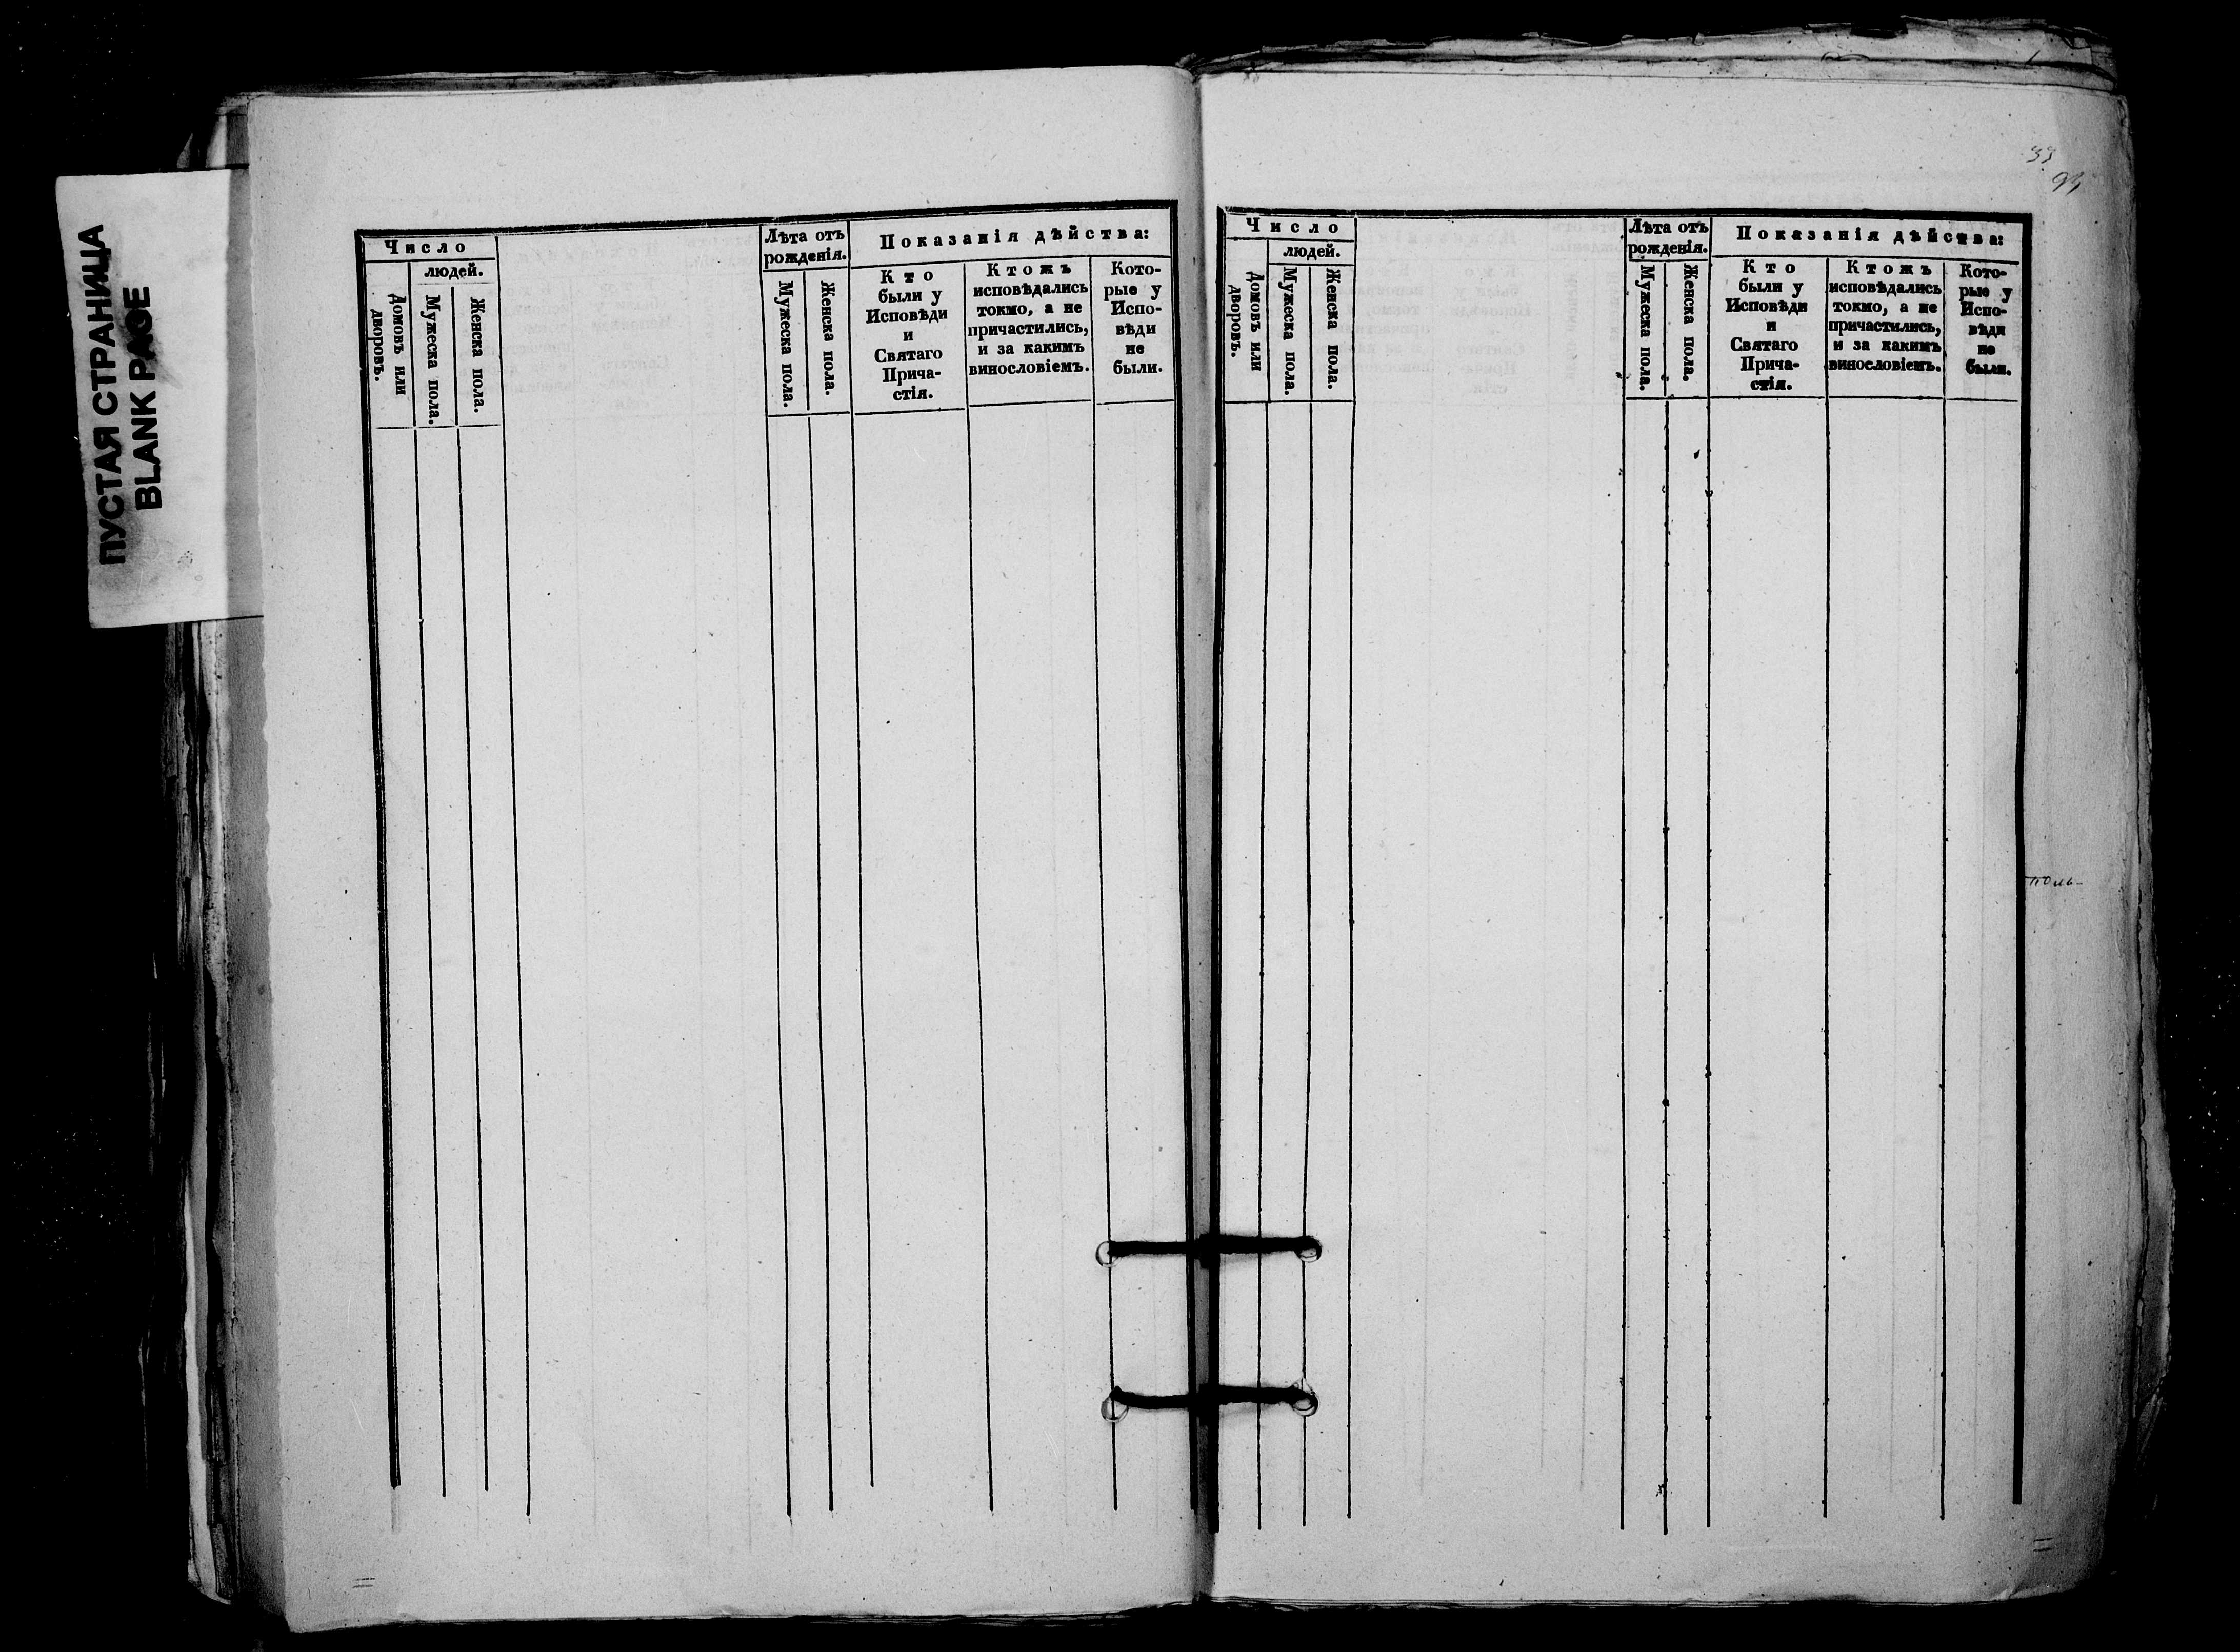 ПУСТАЯ СТРАНИЦА
BLANK PAGE
Число
людей.
Домовъ или
дворовъ.
Мужеска пола.
Женска пола.
Лѣта отъ
рожденія.
Мужеска пола.
Женска пола.
Показанія дѣйства:
Кто
были у
Исповѣди
и
Святаго
Прича-
стія.
Ктожъ
исповѣдались
токмо, а не
причастились,
и за какимъ
винословіемъ.
Кото-
рые у
Испо-
вѣди
не
были.
33
Число
людей.
Домовъ или
дворовъ.
Мужеска пола.
Женска пола.
Лѣта отъ
рожденія.
Мужеска пола.
Женска пола.
Показанія дѣйства:
Кто
были у
Исповѣди
и
Святаго
Прича-
стія.
Ктожъ
исповѣдались
токмо, а не
причастились,
и за какимъ
винословіемъ.
Кото-
рые у
Испо-
вѣди
не
были.